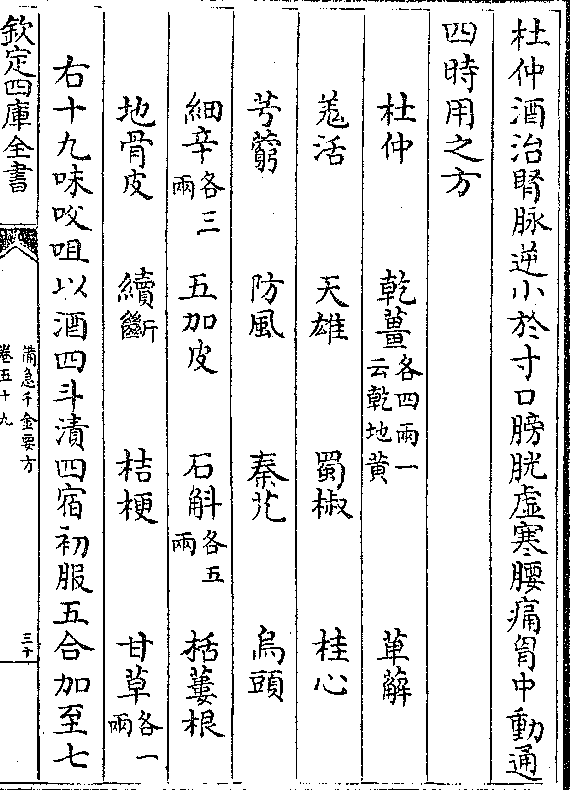 杜仲酒治腎脉逆小於寸口膀胱虚寒腰痛胷中動通
四時用之方
杜仲 乾薑各四兩一云乾地黄 萆薢
羗活 天雄 蜀椒 桂心
芎藭 防風 秦艽 烏頭
細辛各三兩 五加皮 石斛各五兩 栝蔞根
地骨皮 續斷 桔梗 甘草各一兩
右十九味㕮咀以酒四斗漬四宿初服五合加至七
欽定四庫全書
備急千金要方
卷五十九
三十